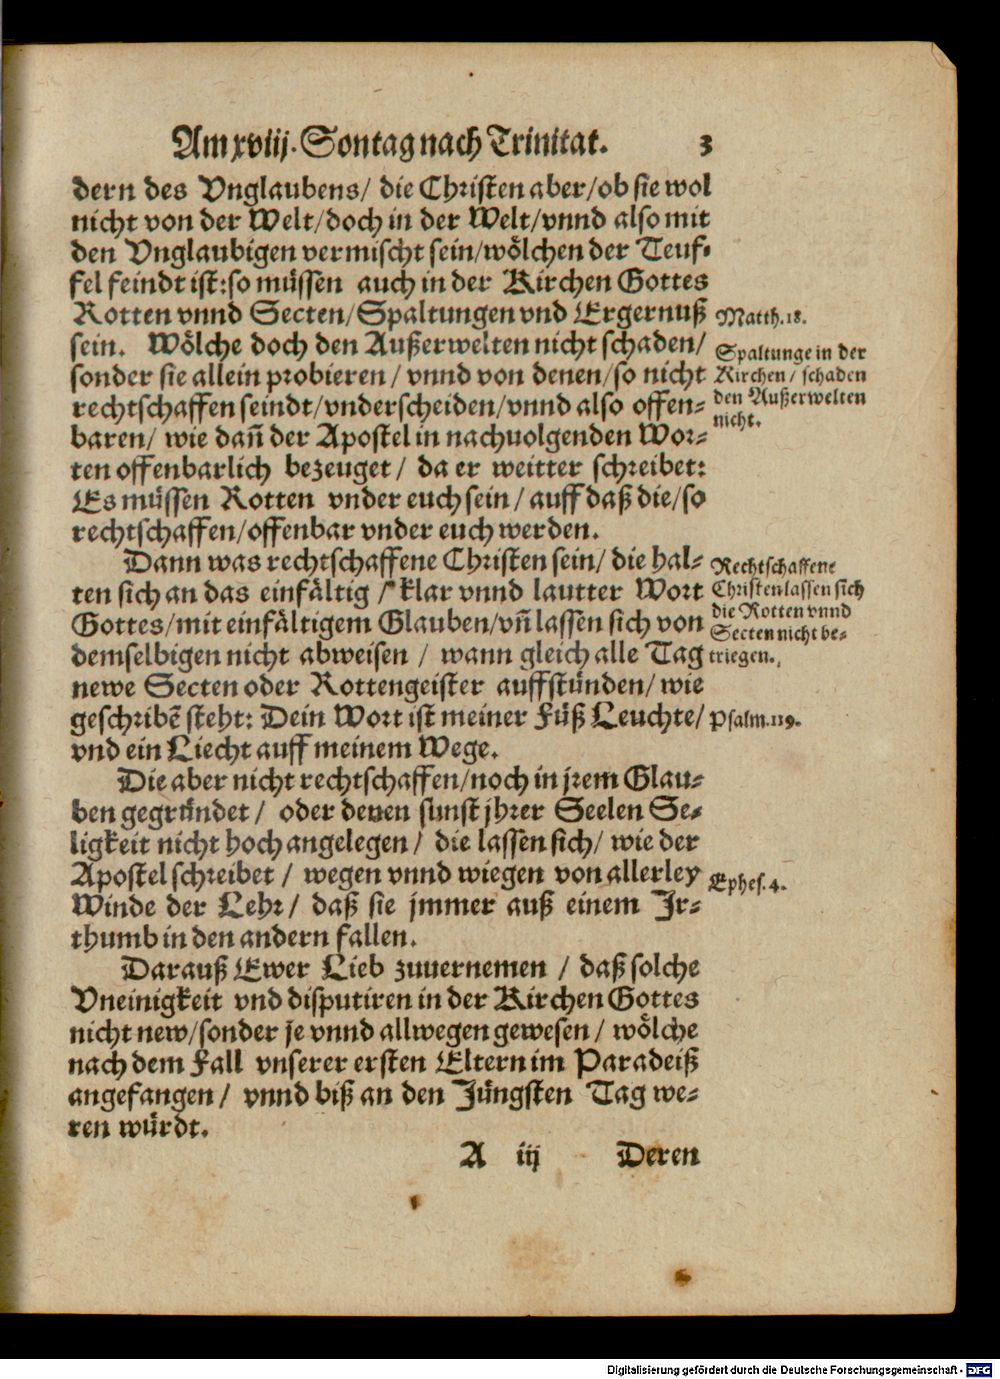 Am xviij. Sontag nach Trinitat. 3
dern des Vnglaubens/ die Christen aber/ob sie wol
nicht von der Welt/doch in der Welt/vnnd also mit
den Vnglaubigen vermischt sein/wölchen der Teuf-
fel feindt ist:so müssen auch in der Kirchen Gottes
Rotten vnnd Secten/Spaltungen vnd Ergernuß
Matth.18.
sein. Wölche doch den Außerwelten nicht schaden/
Spaltunge in der
sonder sie allein probieren / vnnd von denen/so nicht
Kirchen/ schaden
rechtschaffen seindt/vnderscheiden/vnnd also offen-
den Außerwelten
nicht.
baren/ wie dañ der Apostel in nachuolgenden Wor-
ten offenbarlich bezeuget / da er weitter schreibet:
Es müssen Rotten vnder euch sein / auff daß die/so
rechtschaffen/offenbar vnder euch werden.
Dann was rechtschaffene Christen sein/ die hal-
Rechtschaffene
ten sich an das einfältig / klar vnnd lautter Wort
Christen lassen sich
Gottes/mit einfältigem Glauben/vñ lassen sich von
die Rotten vnnd
Secten nicht be-
demselbigen nicht abweisen / wann gleich alle Tag
triegen.
newe Secten oder Rottengeister auffstünden/ wie
geschribē steht: Dein Wort ist meiner Füß Leuchte/
Psalm.119.
vnd ein Liecht auff meinem Wege.
Die aber nicht rechtschaffen/noch in jrem Glau-
ben gegründet / oder denen sunst jhrer Seelen Se-
ligkeit nicht hoch angelegen / die lassen sich/ wie der
Apostel schreibet / wegen vnnd wiegen von allerley
Ephes.4.
Winde der Lehr/ daß sie jmmer auß einem Jr-
thumb in den andern fallen.
Darauß Ewer Lieb zuuernemen / daß solche
Vneinigkeit vnd disputiren in der Kirchen Gottes
nicht new/sonder je vnnd allwegen gewesen / wölche
nach dem Fall vnserer ersten Eltern im Paradeiß
angefangen / vnnd biß an den Jüngsten Tag we-
ren würdt.
A iij Deren
Digitalisierung gefördert durch die Deutsche Forschungsgemeinschaft - DFG